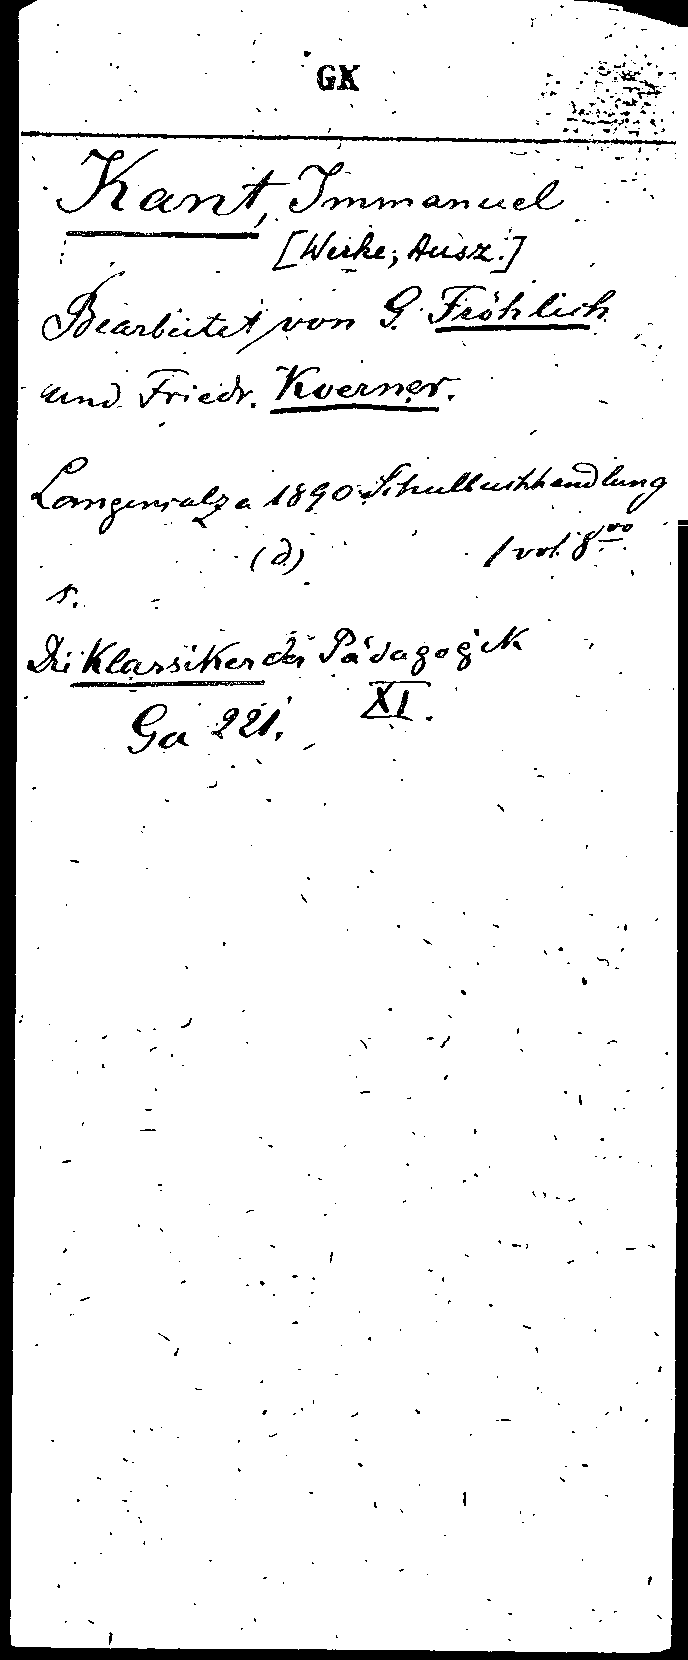 GK
Kant, Immanuel
[Werke, Ausz.]
Bearbeitet von G. Fröhlich
und Friedr. Koerner.
Langensalza 1890 Schulbuchhandlung
(d) 1 vol. 8vo
s.
Die Klassiker der Pädagogik
Ga 221. XI.